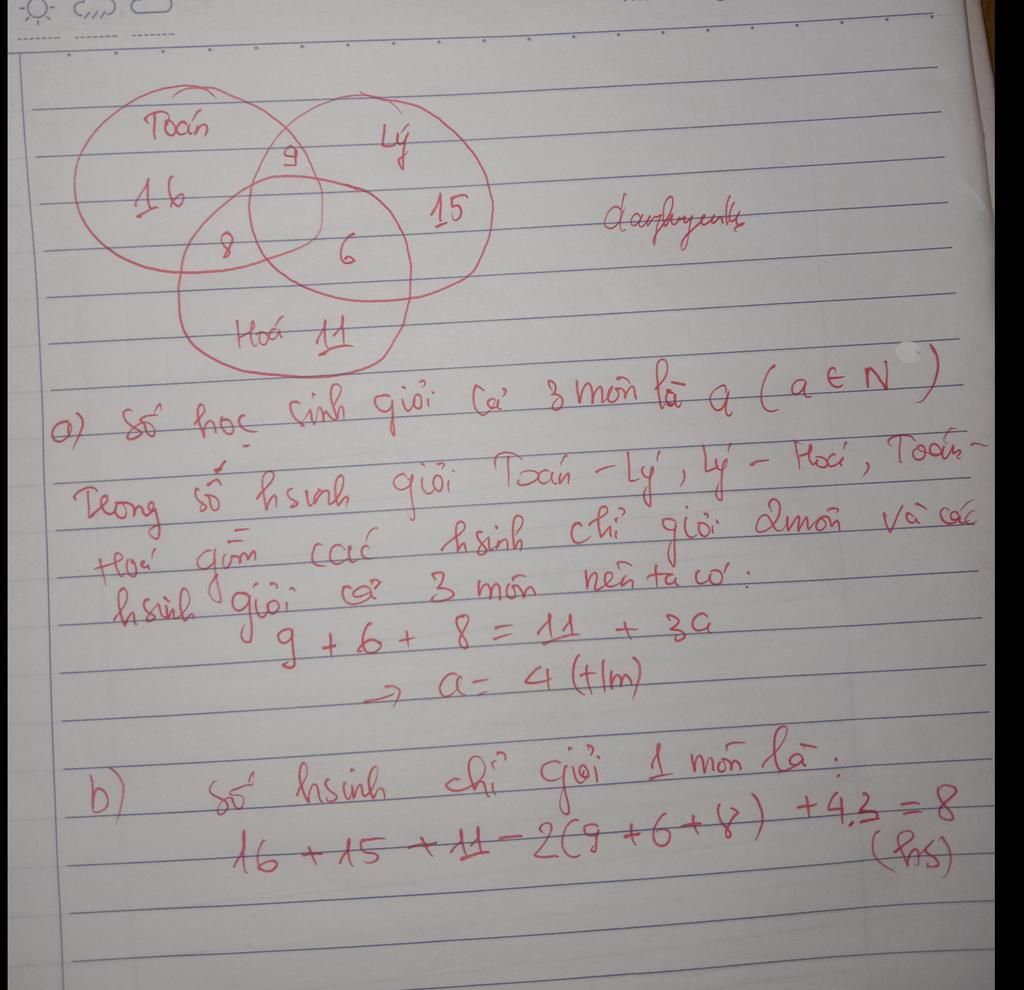 Toán
Lý
9
16
15
8
6
Hoá 11
a) Số học sinh giỏi cả 3 môn là a (a ∈ N)
Trong số hsinh giỏi Toán - Lý, Lý - Hoá, Toán -
Hoá gồm các hsinh chỉ giỏi 2 môn và các
hsinh giỏi cả 3 môn nên ta có:
9 + 6 + 8 = 11 + 3a
→ a = 4 (t/m)
b) Số hsinh chỉ giỏi 1 môn là:
16 + 15 + 11 - 2(9 + 6 + 8) + 4.3 = 8
(hs)